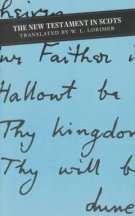 heiven
THE NEW TESTAMENT IN SCOTS
TRANSLATED BY W. L. LORIMER
ur Faither i
Hallowt be
Thy kingdo
Thy will b
dune